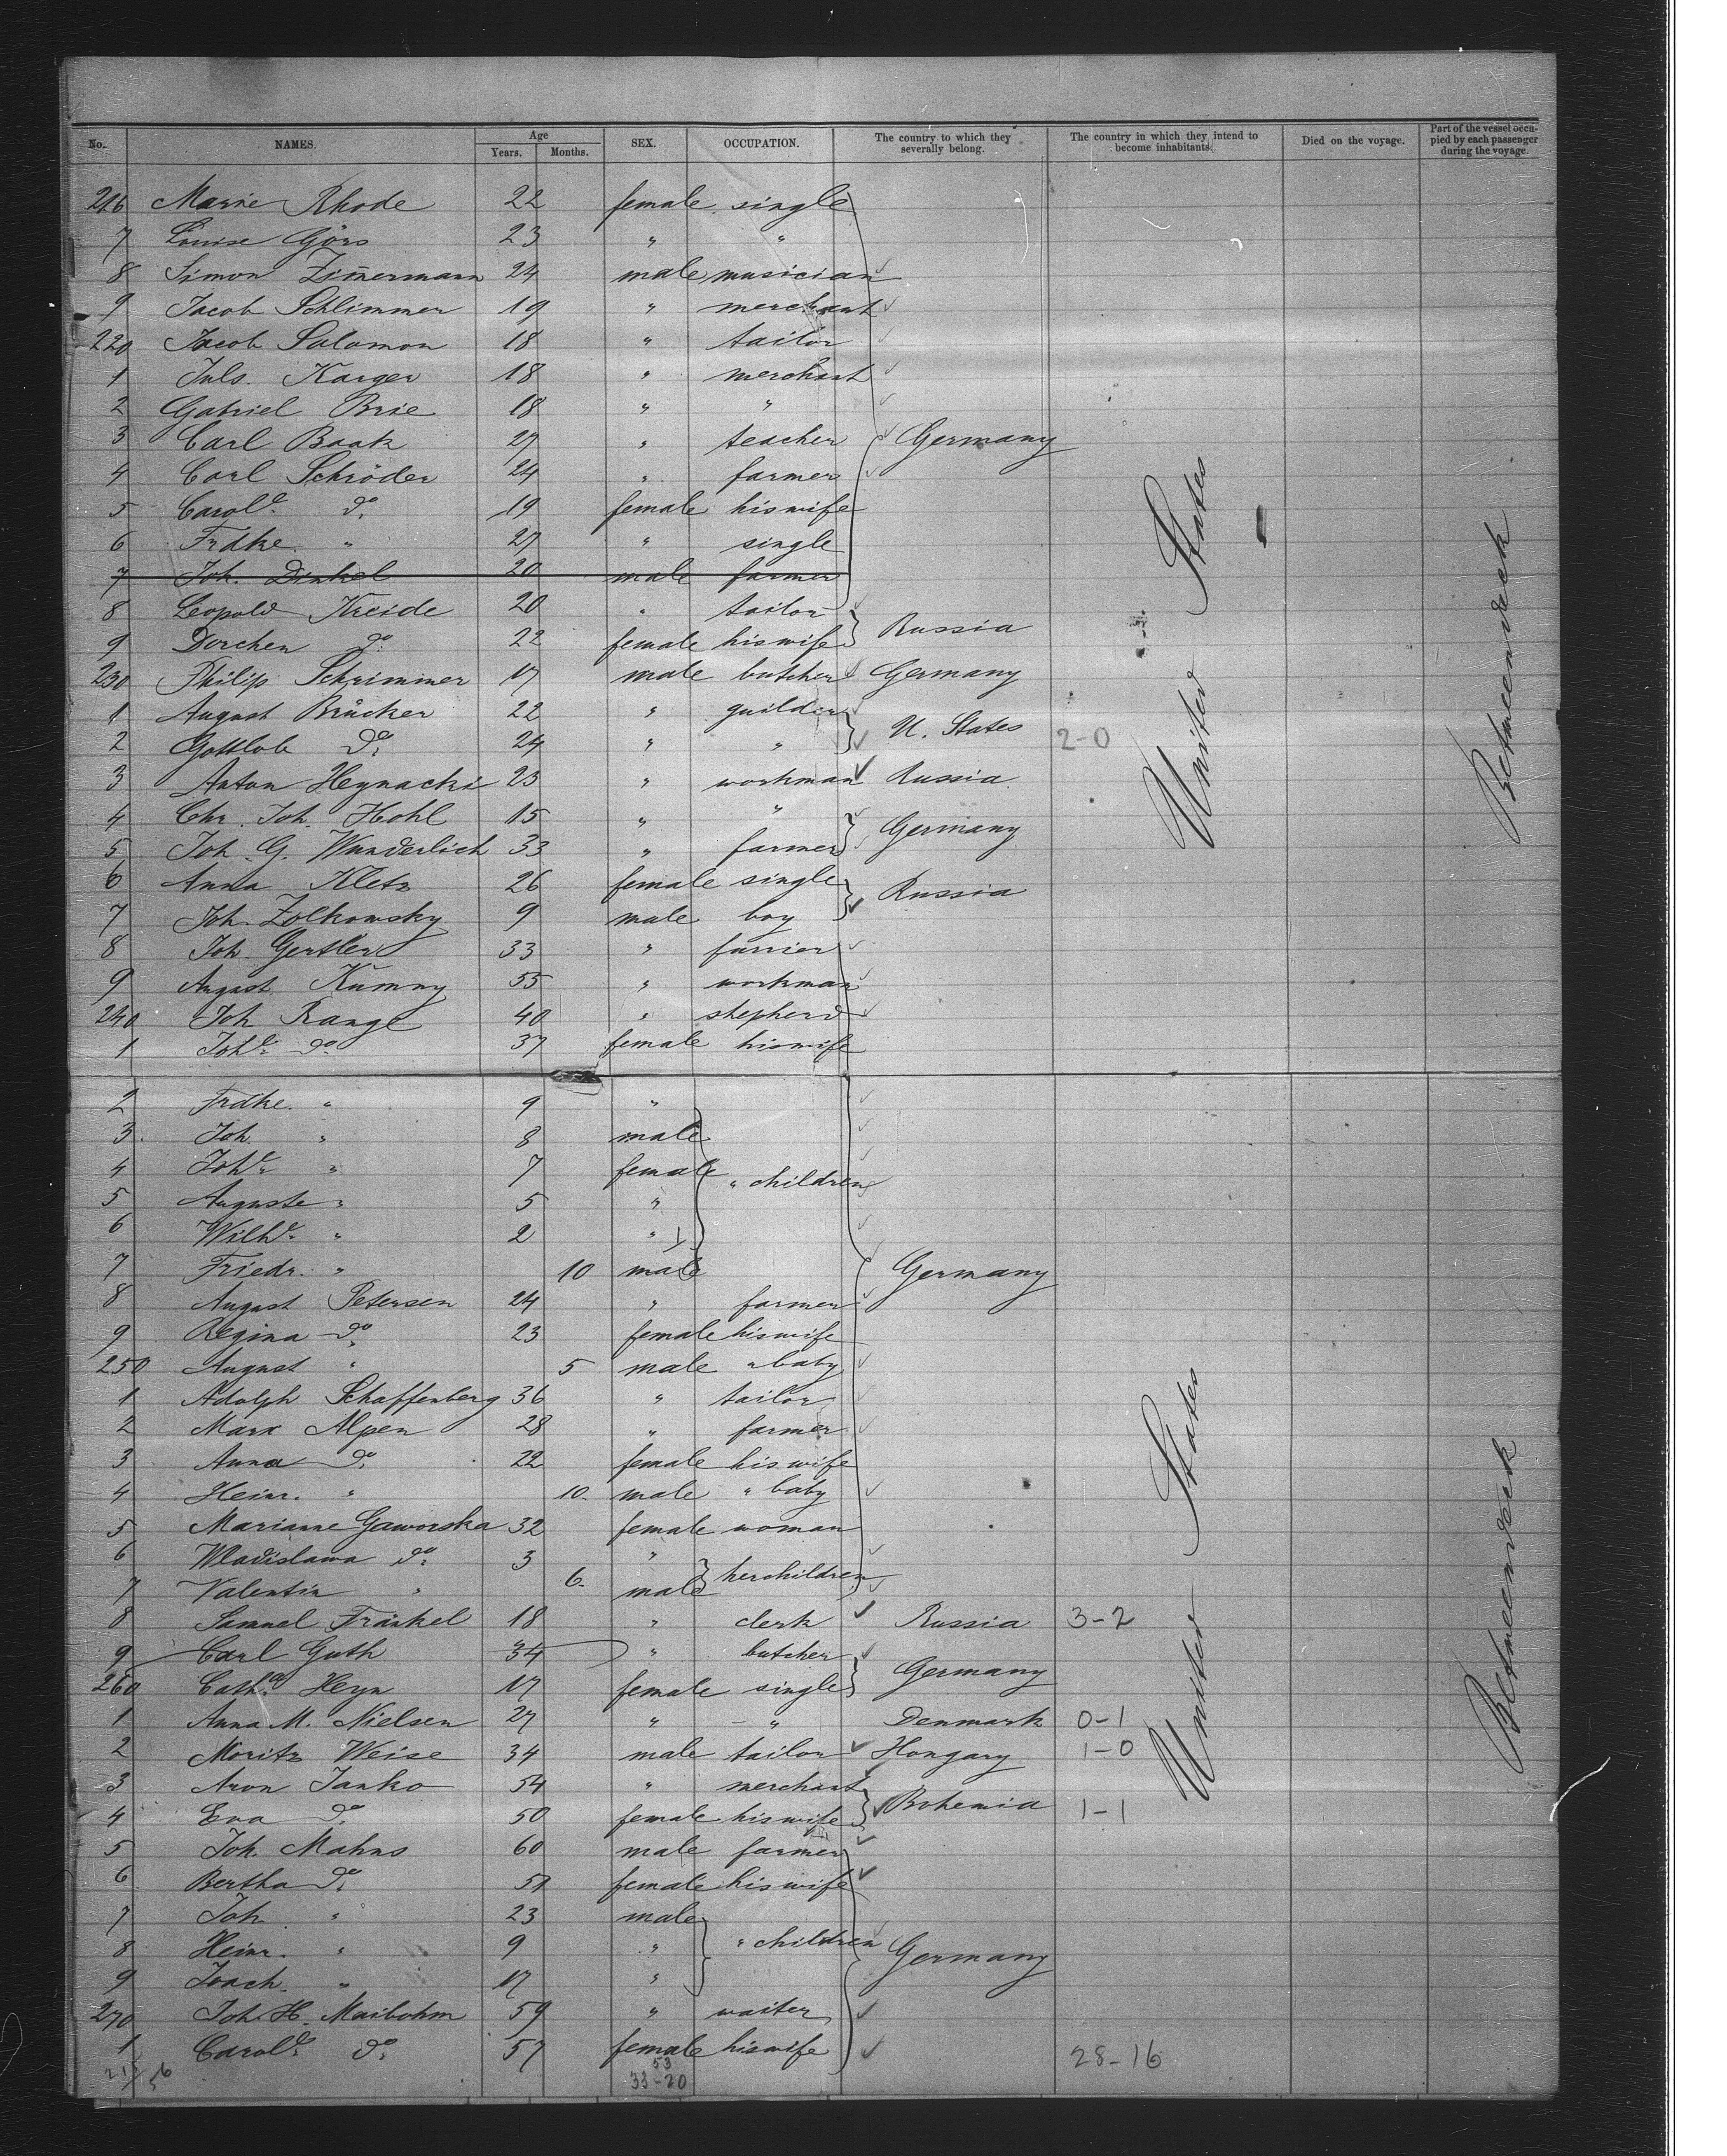 No. NAMES. Age Years. Months. SEX. OCCUPATION. The country to which they severally belong. The country in which they intend to become inhabitants. Died on the voyage. Part of the vessel occupied by each passenger during the voyage.
216 Marie Rhode 22 female single
7 Louise Görs 23 " "
8 Simon Zim̄ermann 24 male musician
9 Jacob Schlimmer 19 " merchant
220 Jacob Salomon 18 " tailor
1 Juls. Karger 18 " merchant
2 Gabriel Brie 18 " "
3 Carl Baak 27 " teacher Germany
4 Carl Schröder 24 " farmer
5 Carole. do. 19 female his wife
6 Frdke. " 27 " single
7 Joh. Dinkel 20 male farmer
8 Leopold Kreide 20 " tailor
9 Dorchen do. 22 female his wife Russia
230 Philip Schrimmer 17 male butcher Germany
1 August Brücker 22 " guilder
2 Gottlob do. 24 " " U. States 2-0
3 Anton Heynacki 23 " workman Russia
4 Chr. Joh. Hohl 15 " "
5 Joh. G. Wunderlich 33 " farmer Germany
6 Anna Kletz 26 female single
7 Joh. Zolkowsky 9 male boy Russia
8 Joh. Gertler 33 " furrier
9 August Kummy 55 " workman
240 Joh Range 40 " shepherd
1 Johe. do. 37 female his wife
2 Frdke. " 9 "
3 Joh. " 8 male
4 Johe. " 7 female " children
5 Auguste " 5 "
6 Wilhe. " 2 "
7 Friedr. " 10 male Germany
8 August Petersen 24 " farmer
9 Regina do. 23 female his wife
250 August " 5 male " baby
1 Adolph Schaffenberg 36 " tailor
2 Marx Alpen 28 " farmer
3 Anna do. 22 female his wife
4 Heinr. " 10. male " baby
5 Marianne Gaworska 32 female woman
6 Wladislawa do. 3 "
7 Valentin " 6. male her children
8 Samuel Fränkel 18 " clerk Russia 3-2
9 Carl Guth 34 " butcher
260 Catha. Heyn 17 female single Germany
1 Anna M. Nielsen 27 " " Denmark 0-1
2 Moritz Weise 34 male tailor Hongary 1-0
3 Aron Janko 54 " merchant
4 Eva do. 50 female his wife Bohemia 1-1
5 Joh. Mahns 60 male farmer
6 Bertha do. 51 female his wife
7 Joh. " 23 male
8 Heinr. " 9 " " children Germany
9 Joach. " 17 "
270 Joh. H. Maibohm 59 " waiter
1 Carole. do. 57 female his wife 28-16
53
33-20
United States
Betweendeck
United States
Betweendeck